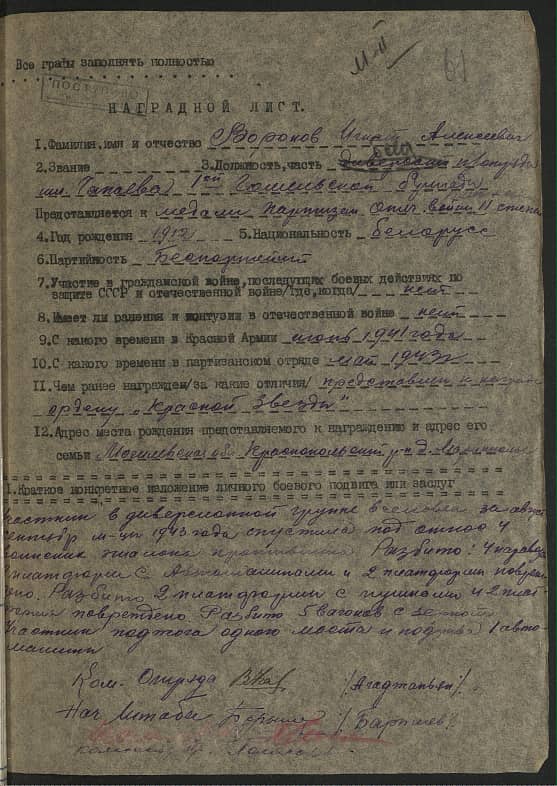 Все графы заполнять полностью
ПОСТУПИЛО
61
НАГРАДНОЙ ЛИСТ.
1.Фамилия,имя и отчество Воронов Игнат Алексеевич
2.Звание 3.Должность,часть отряда
им. Чапаева 1ой Гомельской бригады
Представляется к медали партизан. Отеч. войны II степени
4.Год рождения 1912 5.Национальность белорусс
6.Партийность Беспартийный
7.Участие в гражданской войне,последующих боевых действиях по
защите СССР и отечественной войне/где,когда/ нет
8.Имеет ли ранения и контузии в отечественной войне нет
9.С какого времени в Красной Армии июнь 1941 года
10.С какого времени в партизанском отряде май 1943г
11.Чем ранее награжден/за какие отличия/ представлен к
ордену „Красной Звезды"
12.Адрес места рождения представляемого к награждению и адрес его
семьи Могилевская об. Краснопольский р-н д.
1.Краткое конкретное изложение личного боевого подвига или заслуг
Участник в диверсионной группе за август
сентябрь м-цы 1943 года спустила под откос 4
эшелона противника. Разбито: 4 паровоза
платформ с автомашинами и 2 платформы
Разбито 2 платформы с пушками и 2
повреждено. Разбито 5 вагонов с
Участник поджога одного моста и 1 авто-
машины
Ком. Отряда
Нач Штаба